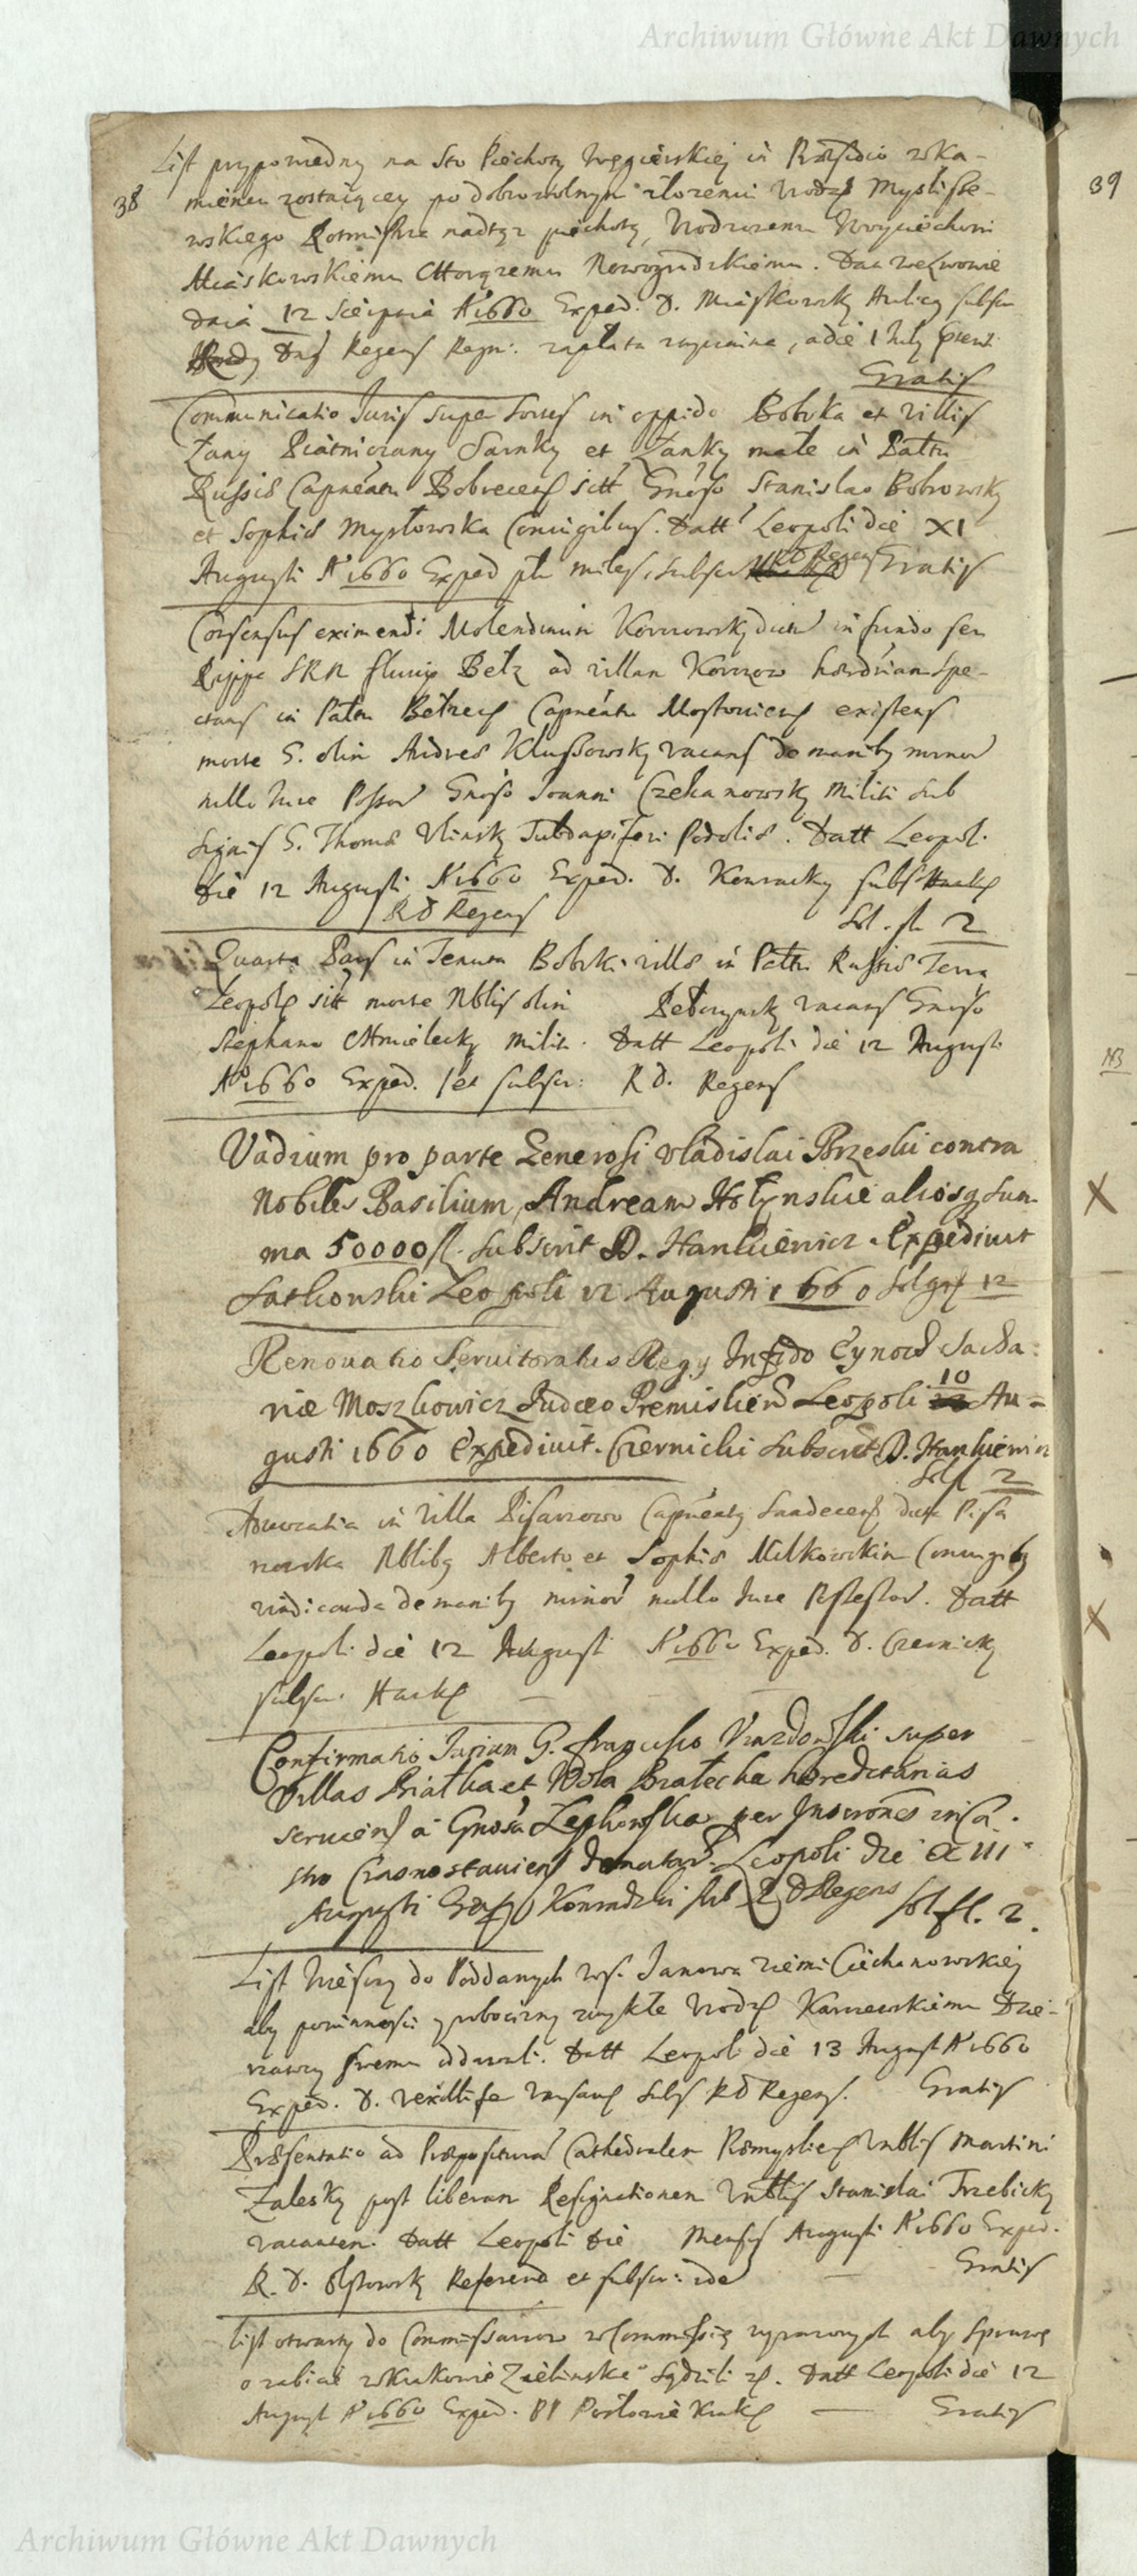 Archiwum Główne Akt Dawnych
List przypowiedny na Sto Piechoty Węgierskiej in Praesidio w Ka-
38 mieńcu zostaiącey po dobrowolnym złozeniu Urodz Myslisze-
wskiego Rotmistrza nad tąz piechotą, Urodzonemu Woyciechowi
Miaskowskiemu Chorązemu Nowogrodzkiemu. Dan we Lwowie
dnia 12 Sierpnia Aº 1660 Exped. D. Miaskowsky Aulicy subscr
Dns Regens Regni: zapłata zaczina, a die 1 July praes.
Gratis
Communicatio Juris super Sortes in oppido Bobrka et villis
Łany Piatniczany Sarnky et Łanky małe in Pałtu
Russiae Capneatu Bobrecens sitt Gnoso Stanislao Bobrowsky
et Sophiae Mysłowska Coniugibus. Datt Leopoli die XI
Augusti Aº 1660 Exped pr miles, subscr RD Regens Gratis
Consensus eximendi Molendinum Korczowsky dictum in fundo seu
Rippa SRM fluvij Bełz ad villam Korczow haeredriam spe-
ctans in Pałtu Bełzens Capneatu Mostovicens existens
morte G. olim Andreae Klussowsky vacans de manibq minor
nullo Jure Possor Gnoso Joanni Czekanowsky Militi sub
signis G. Thomae Ulinsky Subdapiferi Podoliae. Datt Leopoli
die 12 Augusti Aº 1660 Exped. D. Konracky subs
RD Regens Sol. fl. 2
Quarta Pars in Tenuta Bobrki villae in Pałtu Russiae Terra
Leopols sitt morte Nblis olim Pełczynsky vacans Gnoso
Stephano Chmielecky Militi. Datt Leopoli die 12 Augusti
Aº 1660 Exped. et subscr: R D. Regens
Vadium pro parte Generosi Vladislai Brzeski contra
Nobiles Basilium, Andream Hołynskie aliosq Sum-
ma 50000 fl. Subscrit D. Hankiewicz. Expediuit
Satkonski Leopoli 12 Augusti 1660 Sol gr 12
Renouatio Seruitoratus Regy Infido Cynoch Sacha:
rie Moszkowicz Judaeo Premisliens Leopoli 10 Au-
gusti 1660 Expediuit. Czernicki Subscrit D. Hankiewicz
Sol fl 2
Aduocatia in Villa Pisarzowa Capneatq Sandecens dicta Pisa
rzowska Nblibq Alberto et Sophiae Milkowskim Coniugibq
vindicanda de manibq minor nullo Jure Possessor. Datt
Leopoli die 12 August Aº 1660 Exped. D. Czernicky
subscr. Hacki
Confirmatio Jurium G. Francisco Vrazdowski super
Villas Briatka et Wola Bratecka haereditarias
seruiens a Gnosa Lepkowska per Inscriones in Ca-
stro Crasnostauiens donatar. Leopoli die XIII
Augusti Exp Konradzki sub R D Regens sol fl. 2.
List Wieszy do Poddanych wsi Janowa ziemi Ciechanowskiey
aby powinnosci y robocizny zwykłe Urodz Karczewskiemu Dzie-
rzawcy swemu oddawali. Datt Leopoli die 13 August Aº 1660
Exped. D. Vexillife Varsaws Subs RD Regens. Gratis
Praesentatio ad Praeposituram Cathedralem Premysliens Vnblis Martini
Zalesky post liberam Resignationem Vnblis Stanislai Trzebicky
vacantem. Datt Leopoli Die Mensis Augusti Aº 1660 Exped.
R. D. Olszowsky Referend et subscr: ide Gratis
List otwarty do Commissarzow w Commissię zypromowych aby Sprawę
o zabicie w Krakowie Zielinske° Sądzili etc. Datt Leopoli die 12
August Aº 1660 Exped. PP Posłowie Krak Gratis
39
NB
Archiwum Główne Akt Dawnych